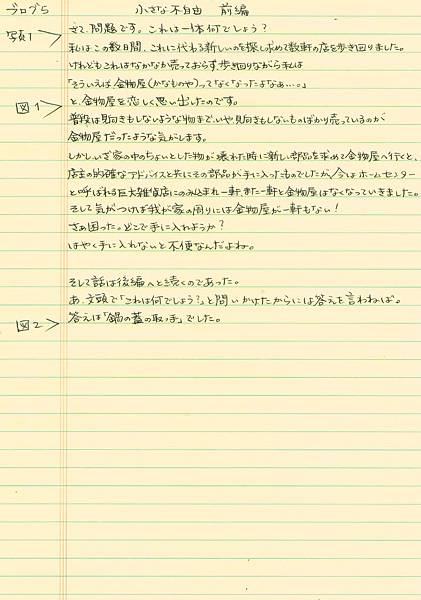 ブログ5 小さな不自由 前編
写真1 > さて、問題です。これは一体何でしょう?
私はこの数日間、これに代わる新しいのを探し求めて数軒の店を歩き回りました。
けれどもこれはなかなか売っておらず、歩き回りながら私は
「そういえば、金物屋(かなものや)ってなくなったよなあ…。」
図1 > と、金物屋を恋しく思い出したのです。
普段は見向きもしないような物まで、いや、見向きもしないものばかり売っているのが
金物屋だったような気がします。
しかし、いざ家の中のちょいとした物が壊れた時に新しい部品を求めて金物屋へ行くと、
店主の的確なアドバイスと共にその部品が手に入ったものでしたが、今はホームセンター
と呼ばれる巨大雑貨店にのみ込まれ一軒、また一軒と金物屋はなくなっていきました。
そして気がつけば我が家の周りには金物屋が一軒もない!
さぁ困った。どこで手に入れよう?
はやく手に入れないと不便なんだよね。
そして話は後編へと続くのであった。
あ、文頭で「これは何でしょう?」と問いかけたからには答えを言わねば。
図2 > 答えは「鍋の蓋の取っ手」でした。